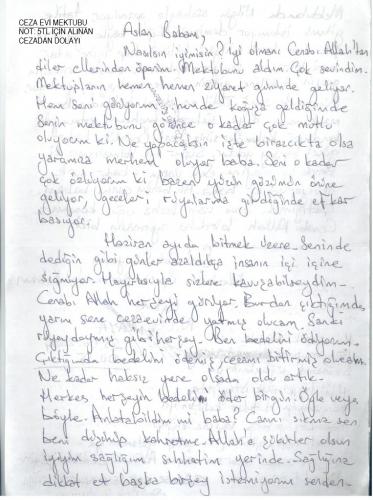 CEZA EVİ MEKTUBU
NOT: 5TL İÇİN ALINAN
CEZADAN DOLAYI
Aslan Babam,
Nasılsın iyimisin? İyi olmanı Cenabı Allah'tan
diler ellerinden öperim. Mektubunu aldım. Çok sevindim.
Mektupların hemen hemen ziyaret gününde geliyor.
Hem seni görüyorum hemde koğuşa geldiğimde
senin mektubunu görünce o kadar çok mutlu
oluyorum ki. Ne yapacaksın işte birazcıkta olsa
yaramıza merhem oluyor baba. Seni o kadar
çok özlüyorum ki bazen yüzün gözümün önüne
geliyor, geceleri rüyalarıma girdiğinde efkar
basıyor.
Haziran ayıda bitmek üzere. Seninde
dediğin gibi günler azaldıkça insanın içi içine
sığmıyor. Hayırlısıyla sizlere kavuşabilseydim.
Cenabı Allah herşeyi görüyor. Burdan çıktığımda
yarım sene cezaevinde yatmış olucam. Sanki
rüyaydaymış gibi herşey. Ben bedelini ödüyorum.
Çıktığımda bedelini ödemiş, cezamı bitirmiş olucam.
Ne kadar haksız yere olsada oldu artık.
Herkes herşeyin bedelini öder birgün. Öyle veya
böyle. Anlatabildim mi baba? Canını sıkma sen
beni düşünüp kahretme. Allah'a şükürler olsun
iyiyim sağlığım sıhhatim yerinde. Sağlığına
dikkat et başka birşey istemiyorum senden.